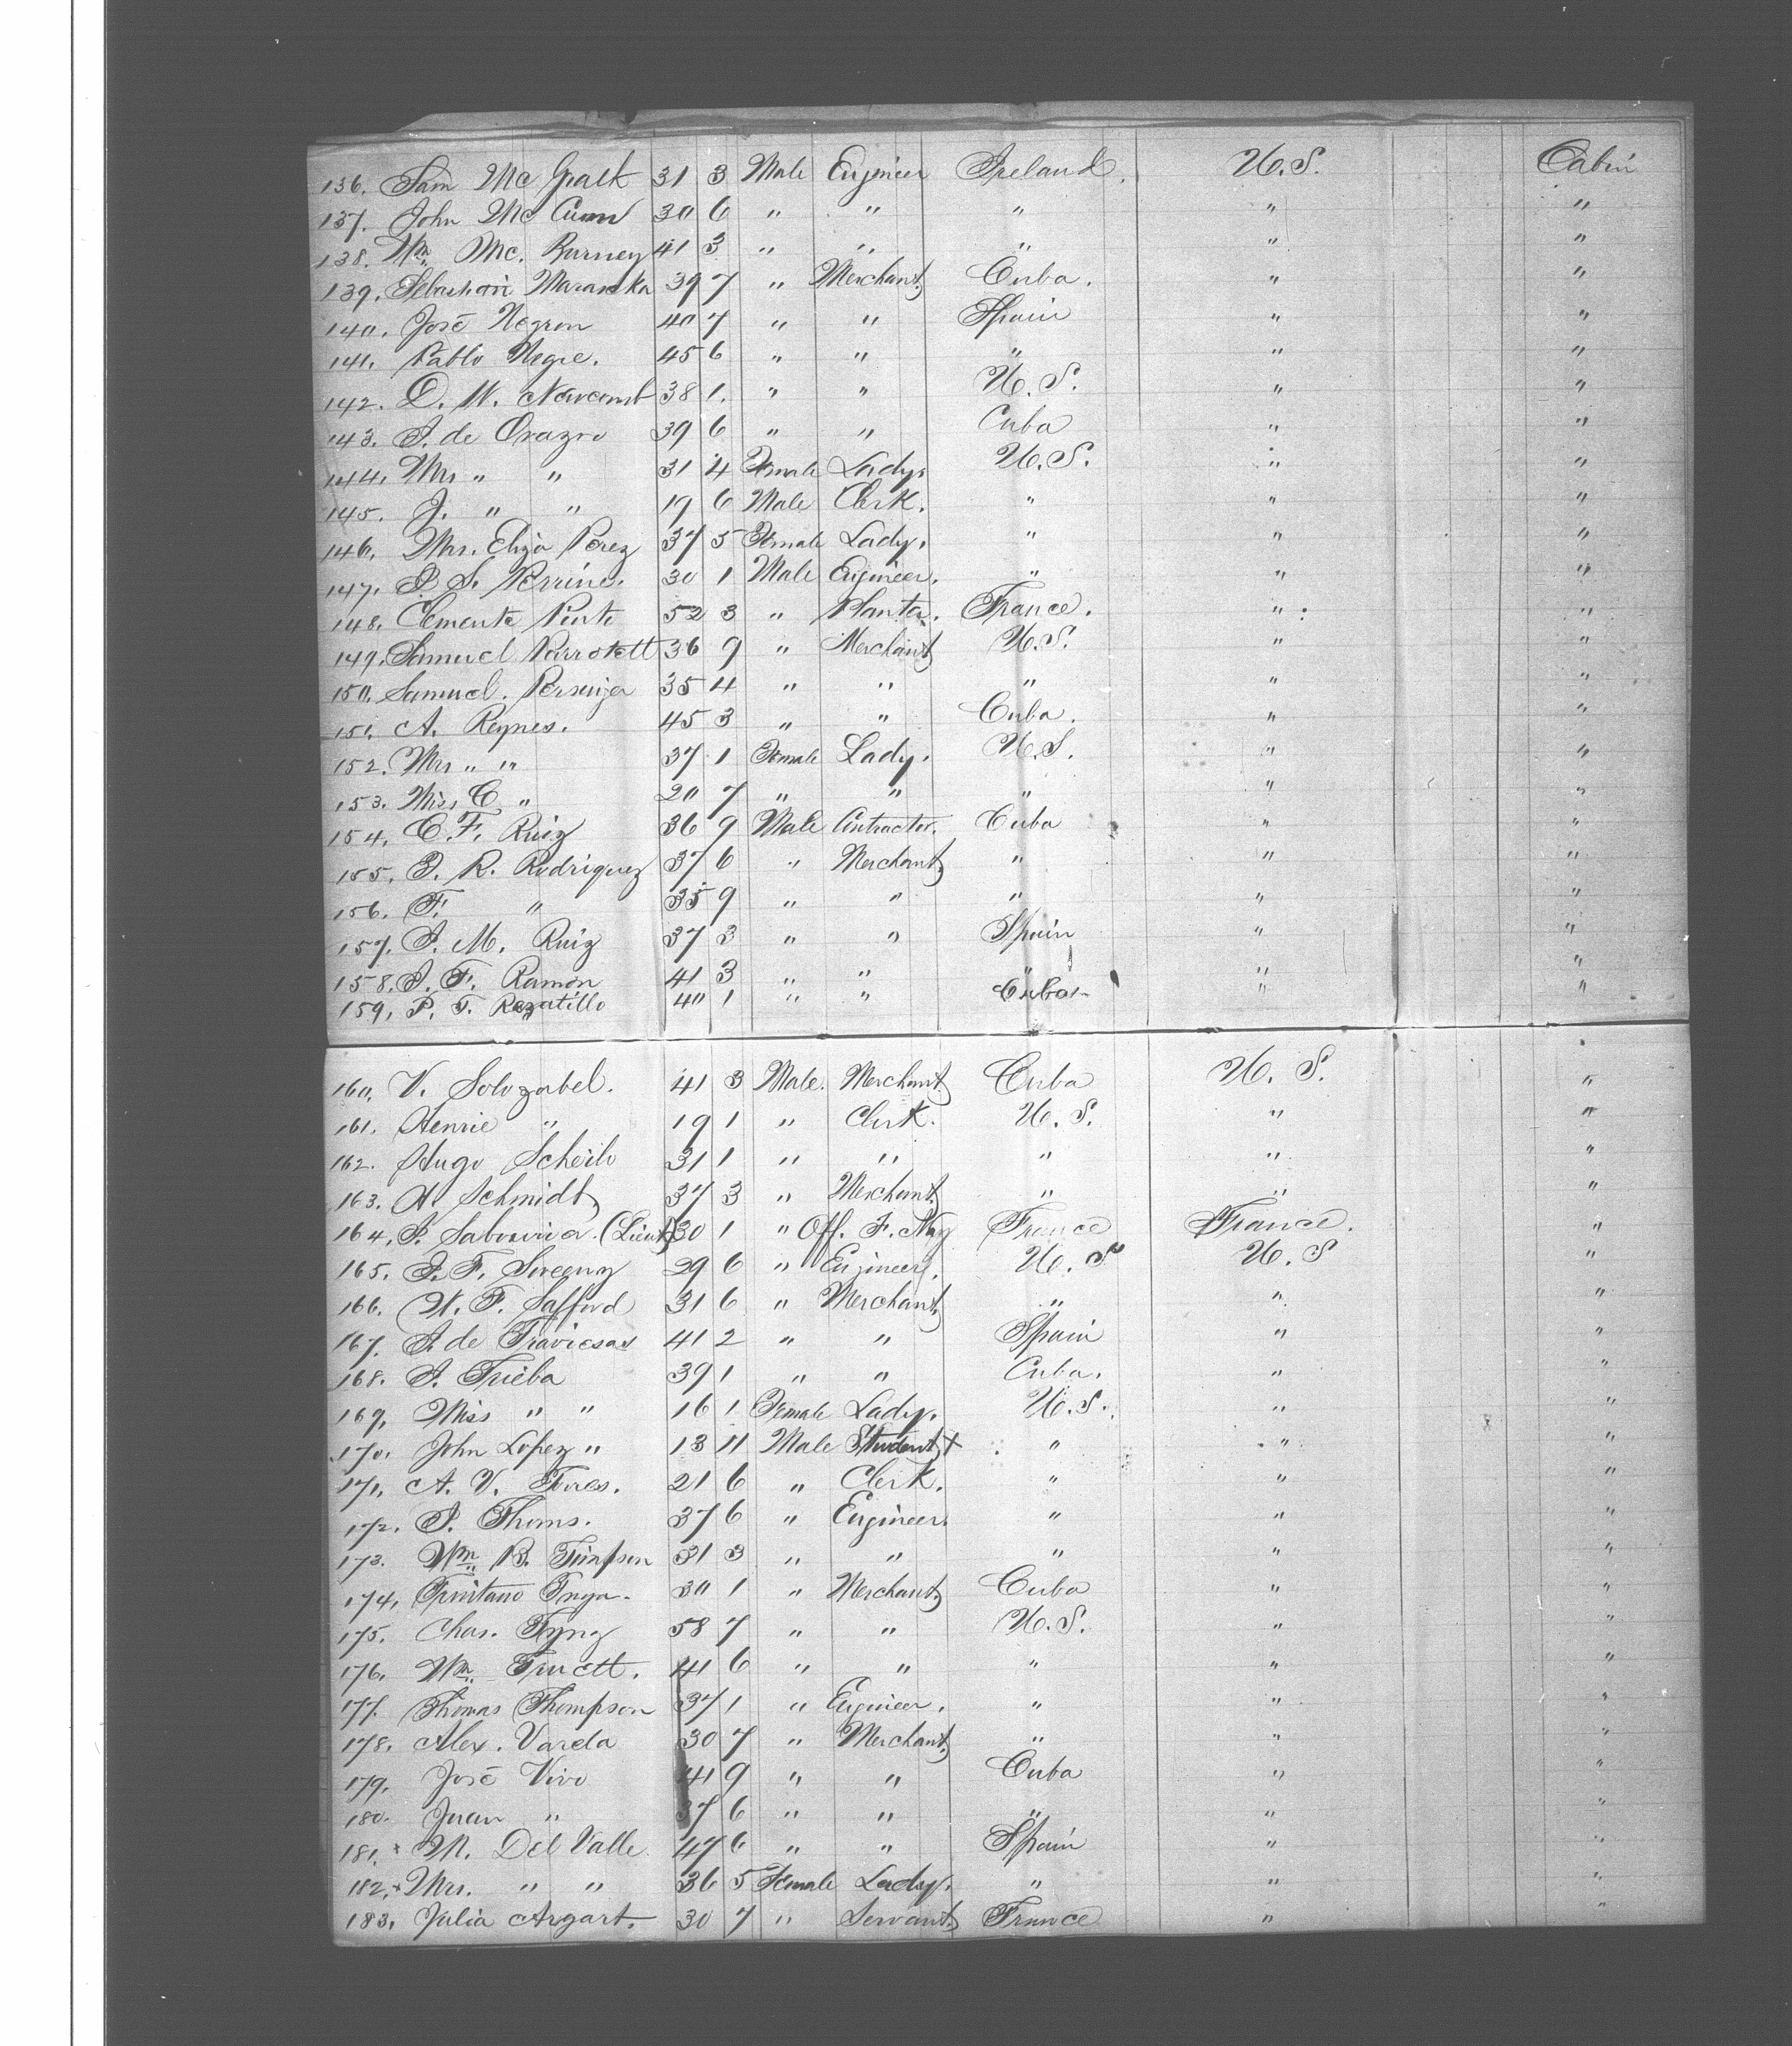 136. Sam Mc Gralk 31 3 Male Engineer Ireland. U.S. Cabin
137. John Mc Cunn 30 6 " " " " "
138. Wm. Mc. Burney 41 3 " " " " "
139. Maranka 39 7 " Merchant Cuba. " "
140. José Negron 40 7 " " Spain " "
141. Pablo Negre. 45 6 " " " " "
142. D. W. Newcomb 38 1. " " U.S. " "
143. J. de Orazro 39 6 " " Cuba " "
144. Mrs " " 31 4 Female Lady. U.S. " "
145. J. " " 19 6 Male Clerk. " " "
146. Mrs. Eliza Perez 37 5 Female Lady. " " "
147. P. S. Perrine. 30 1 Male Engineer. " " "
148. Clemente Pinto 52 3 " Planter. France. " "
149. Samuel Parrotett 36 9 " Merchant U.S. " "
150. Samuel. 35 4 " " " " "
151 A. Reynes. 45 3 " " Cuba. " "
152. Mrs " " 37 1 Female Lady. U.S. " "
153. Miss C " 20 7 " " " " "
154. C. F. Ruiz 36 9 Male Contractor. Cuba " "
155. J. R. Rodriguez 37 6 " Merchant " " "
156. F. " 35 9 " " " " "
157. J. M. Ruiz 37 3 " " Spain " "
158. J. F. Ramon 41 3 " " " " "
159. P. T. Razatillo 40 1 " " Cuba " "
160. V. Solozabel. 41 3 Male. Merchant Cuba U. S. "
161. Henrie " 19 1 " Clerk. U. S. " "
162. Hugo Scheilo 31 1 " " " " "
163. A. Schmidt 37 3 " Merchant " " "
164. (Lieut) 30 1 " Off. F. Navy France France. "
165. J. F. Sweeny 29 6 " Engineer. U. S U. S "
166. W. F. Safford 31 6 " Merchant " " "
167. J. de Traviesas 41 2 " " Spain " "
168. J. Trieba 39 1 " " Cuba. " "
169. Miss " " 16 1 Female Lady. U.S. " "
170. John Lopez " 13 11 Male Student + " " "
171. A. V. Torres. 21 6 " Clerk. " " "
172. J. Thoms. 37 6 " Engineer. " " "
173. Wm B. Timpson 31 3 " " " " "
174. 30 1 " Merchant Cuba " "
175. Chas. Tyng 58 7 " " U.S. " "
176. Wm. Truett. 41 6 " " " " "
177. Thomas Thompson 37 1 " Engineer. " " "
178. Alex. Varela 30 7 " Merchant " " "
179. José Vivo 41 9 " " Cuba " "
180. Juan " 37 6 " " " " "
181. + M. Del Valle 47 6 " " Spain " "
182. + Mrs. " " 36 5 Female Lady. " " "
183. Julia Argart. 30 7 " Servant France " "